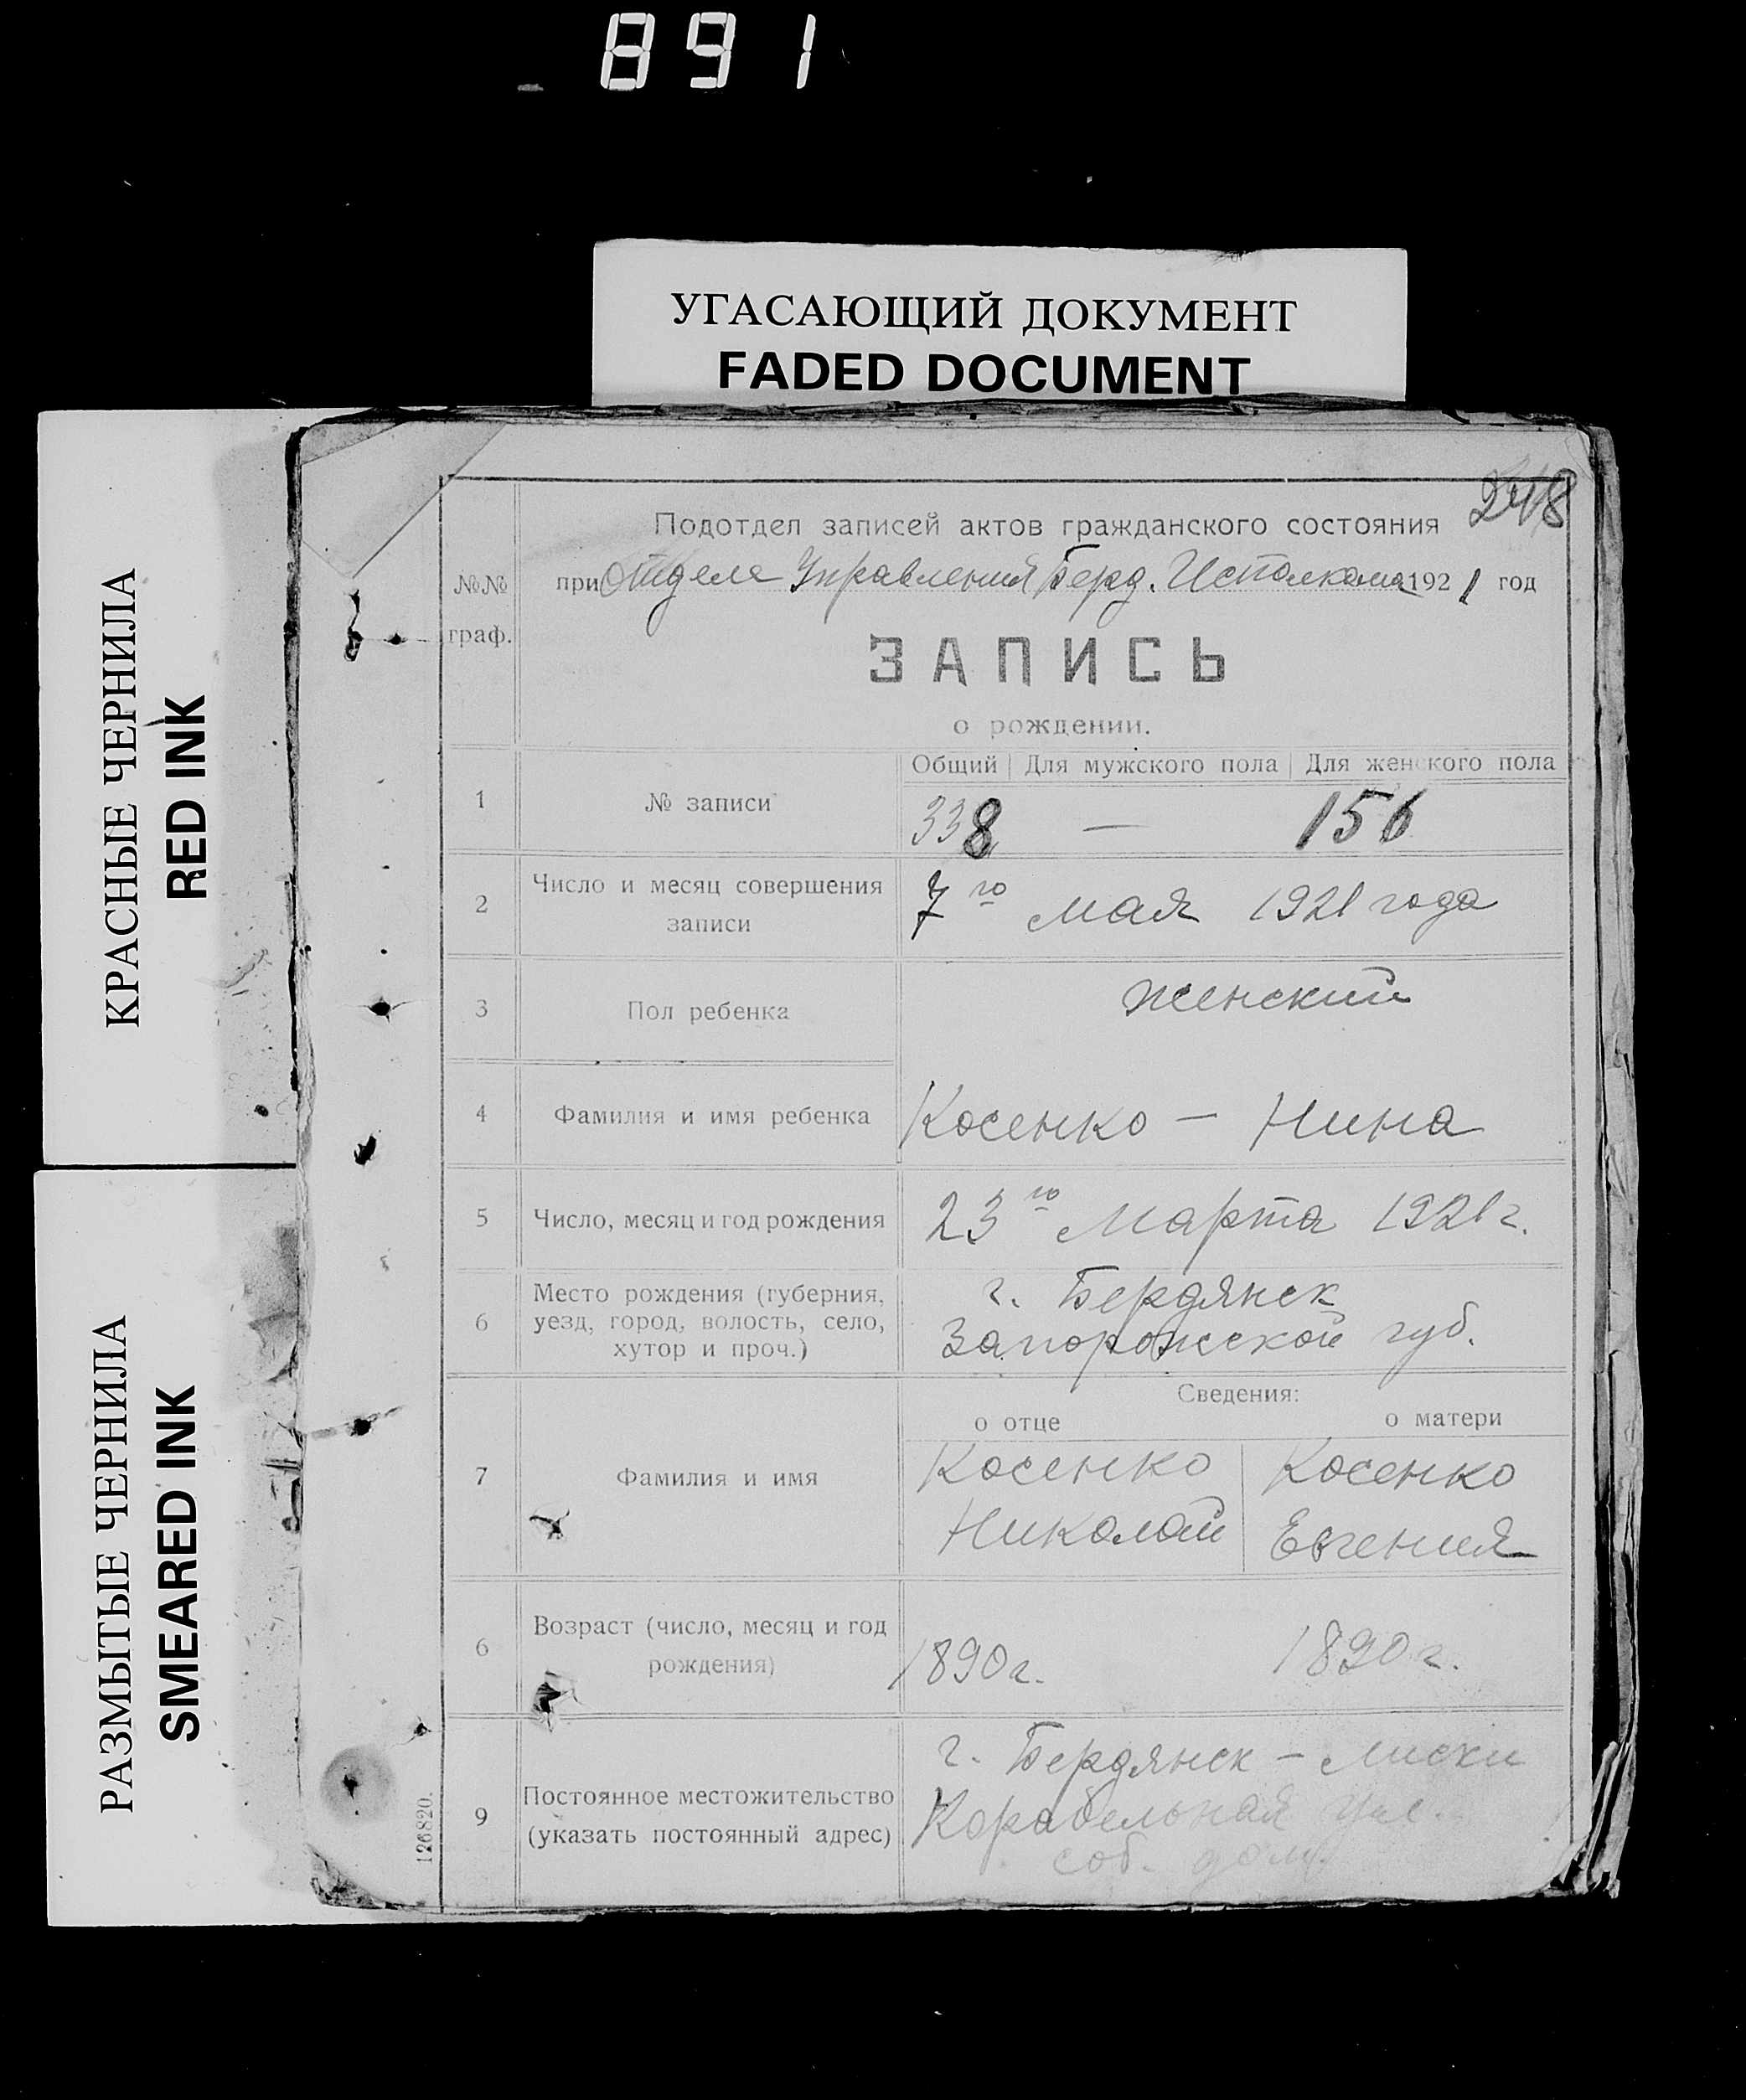 891
УГАСАЮЩИЙ ДОКУМЕНТ
FADED DOCUMENT
КРАСНЫЕ ЧЕРНИЛА
RED INK
РАЗМЫТЫЕ ЧЕРНИЛА
SMEARED INK
248
№№ граф.
Подотдел записей актов гражданского состояния
при Отделе Управления Берд. Исполкома 1921 год
ЗАПИСЬ
о рождении.
Общий Для мужского пола Для женского пола
1 № записи 338 — 156
2 Число и месяц совершения записи 7го мая 1921 года
3 Пол ребенка женский
4 Фамилия и имя ребенка Косенко — Нина
5 Число, месяц и год рождения 23го марта 1921 г.
6 Место рождения (губерния, уезд, город, волость, село, хутор и проч.) г. Бердянск Запорожской губ.
Сведения:
о отце о матери
7 Фамилия и имя Косенко Николай Косенко Евгения
6 Возраст (число, месяц и год рождения) 1890 г. 1890 г.
9 Постоянное местожительство (указать постоянный адрес) г. Бердянск — Лиски Корабельная ул. соб. дом.
126820.